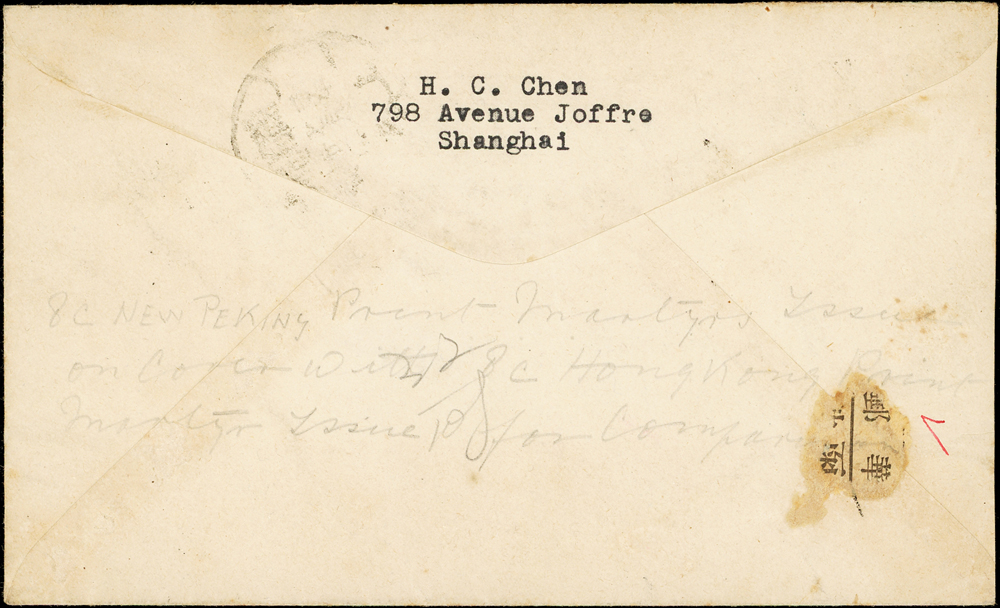 H. C. Chen
798 Avenue Joffre
Shanghai
8c NEW PEKING Print Martyrs Issue
on Cover With 8c HongKong Print
Martyr Issue for Comparison
郵 華